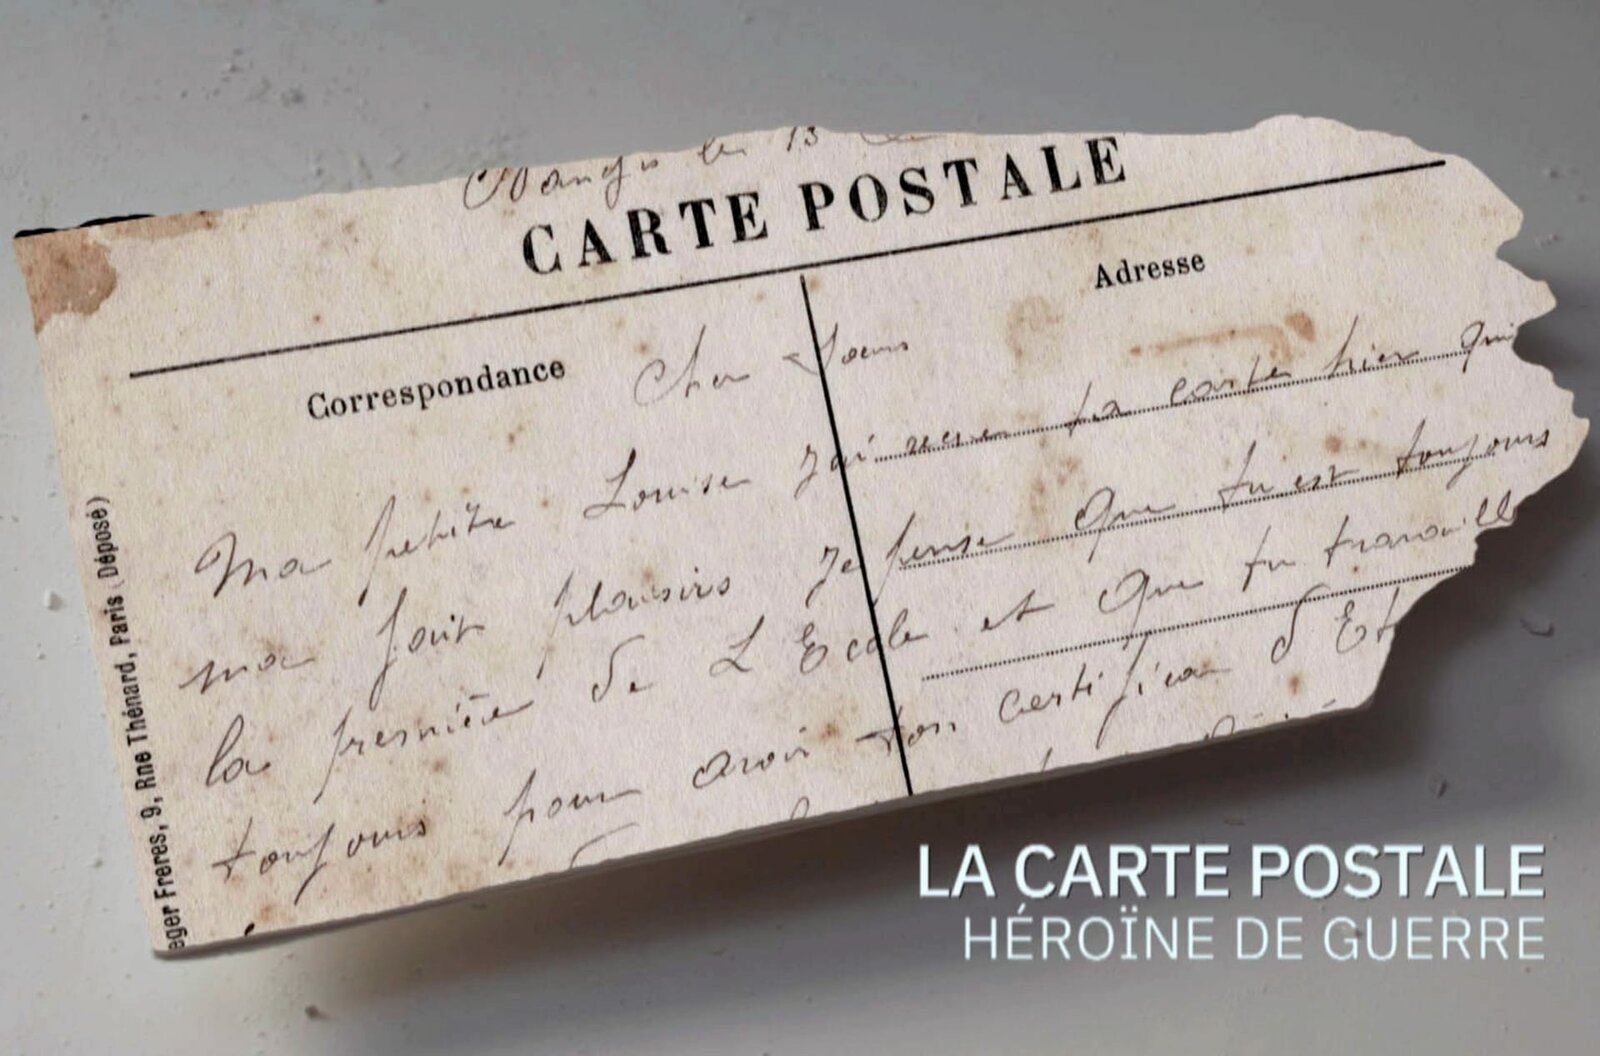 Nangis le 13
CARTE POSTALE
Correspondance
Adresse
Cher
Ma petite Louise J'ai recu ta carte hier qui
ma fait plaisirs Je pense Que tu est toujours
la premiere de L Ecole et Que tu travaill
toujours pour avoir ton certifica d Et
eger Freres, 9, Rne Thénard, Paris (Déposé)
LA CARTE POSTALE
HÉROÏNE DE GUERRE